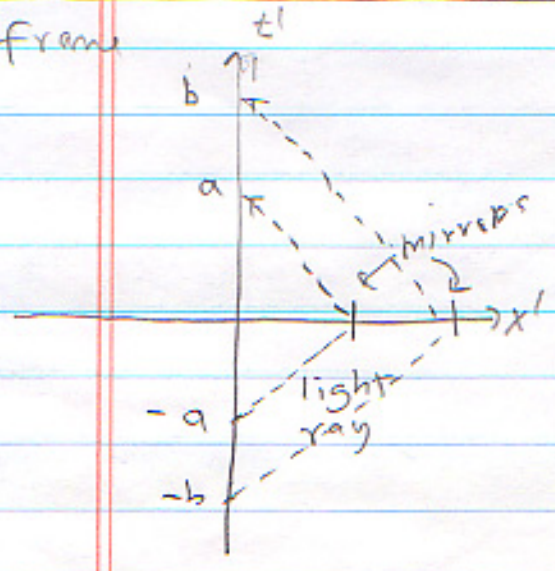 Fram
t'
b
a
mirrors
x'
light
ray
-a
-b